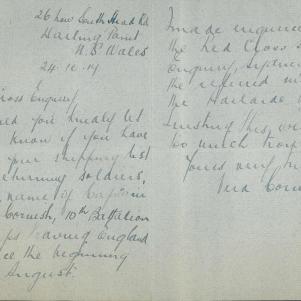 26 New South Head Rd
Darling Point
N. S. Wales
24.10.19
Cross Enquiry
you kindly let
know if you have
your shipping list
returning soldiers,
name of Captain
Cornish, 10th Battalion
leaving England
the beginning
August.
made enquiries
the Red Cross
Enquiry,
the referred
the Adelaide
trusting this
too much trou
Yours very
Vera Corn